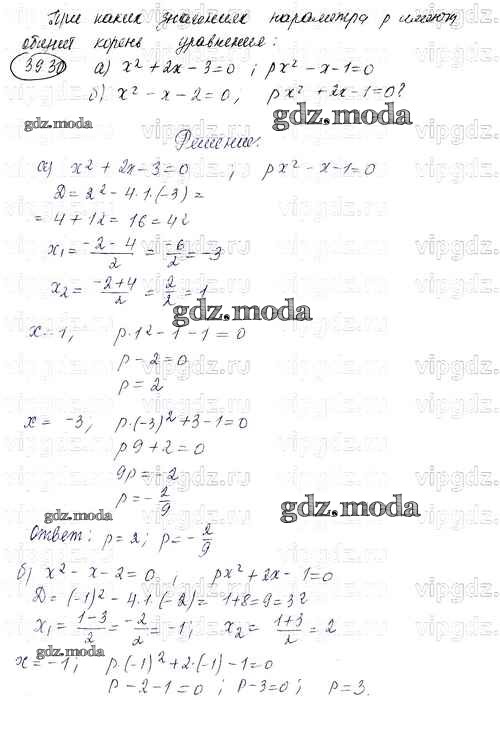 При каких значениях параметра p имеют
общий корень уравнения:
393 а) x² + 2x - 3 = 0 ; px² - x - 1 = 0
б) x² - x - 2 = 0, px² + 2x - 1 = 0?
gdz.moda
Решение:
а) x² + 2x - 3 = 0 ; px² - x - 1 = 0
D = 2² - 4·1·(-3) =
= 4 + 12 = 16 = 4²
x₁ = (-2 - 4)/2 = -6/2 = -3
x₂ = (-2 + 4)/2 = 2/2 = 1
gdz.moda
x = 1, p·1² - 1 - 1 = 0
p - 2 = 0
p = 2
x = -3; p·(-3)² + 3 - 1 = 0
p9 + 2 = 0
9p = -2
p = -2/9
gdz.moda gdz.moda
Ответ: p = 2; p = -2/9
б) x² - x - 2 = 0, ; px² + 2x - 1 = 0
D = (-1)² - 4·1·(-2) = 1 + 8 = 9 = 3²
x₁ = (1 - 3)/2 = -2/2 = -1; x₂ = (1 + 3)/2 = 2
gdz.moda
x = -1; p·(-1)² + 2·(-1) - 1 = 0
p - 2 - 1 = 0 ; p - 3 = 0; p = 3.